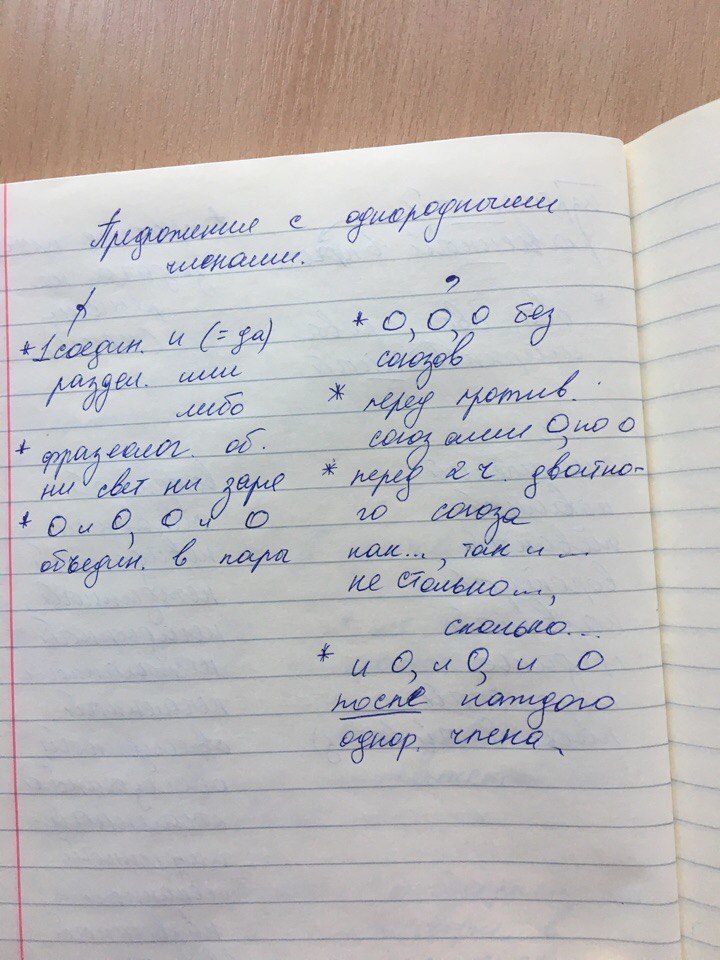 Предложения с однородными
членами.
*1соедин. и (=да)
раздел. или
либо
* фразеолог. об.
ни свет ни заря
* О и О, О и О
объедин. в пары
,
* О, О, О без
союзов
* перед против.
союзами О, но О
* перед 2 ч. двойно-
го союза
как..., так и ...
не столько...,
сколько...
* и О, и О, и О
после каждого
однор. члена.